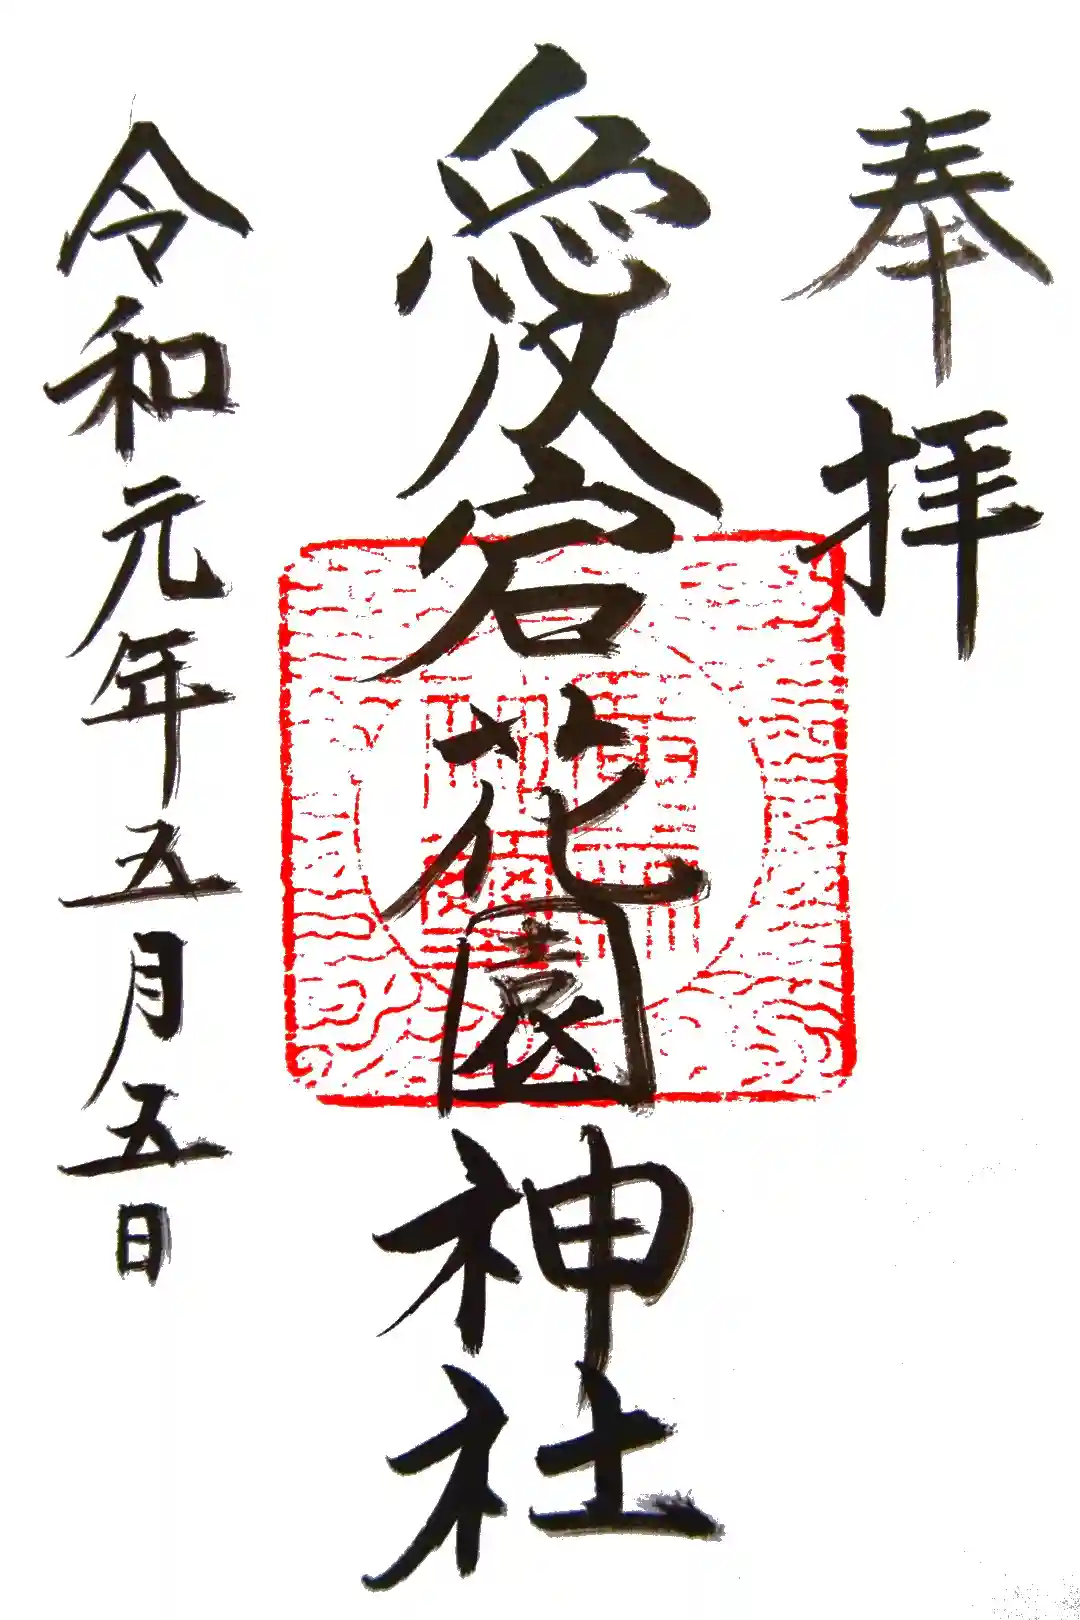 奉拝
愛宕花園神社
令和元年五月五日